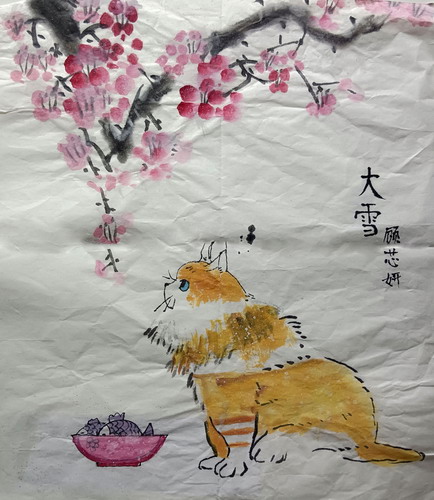 大雪
顾芯妍